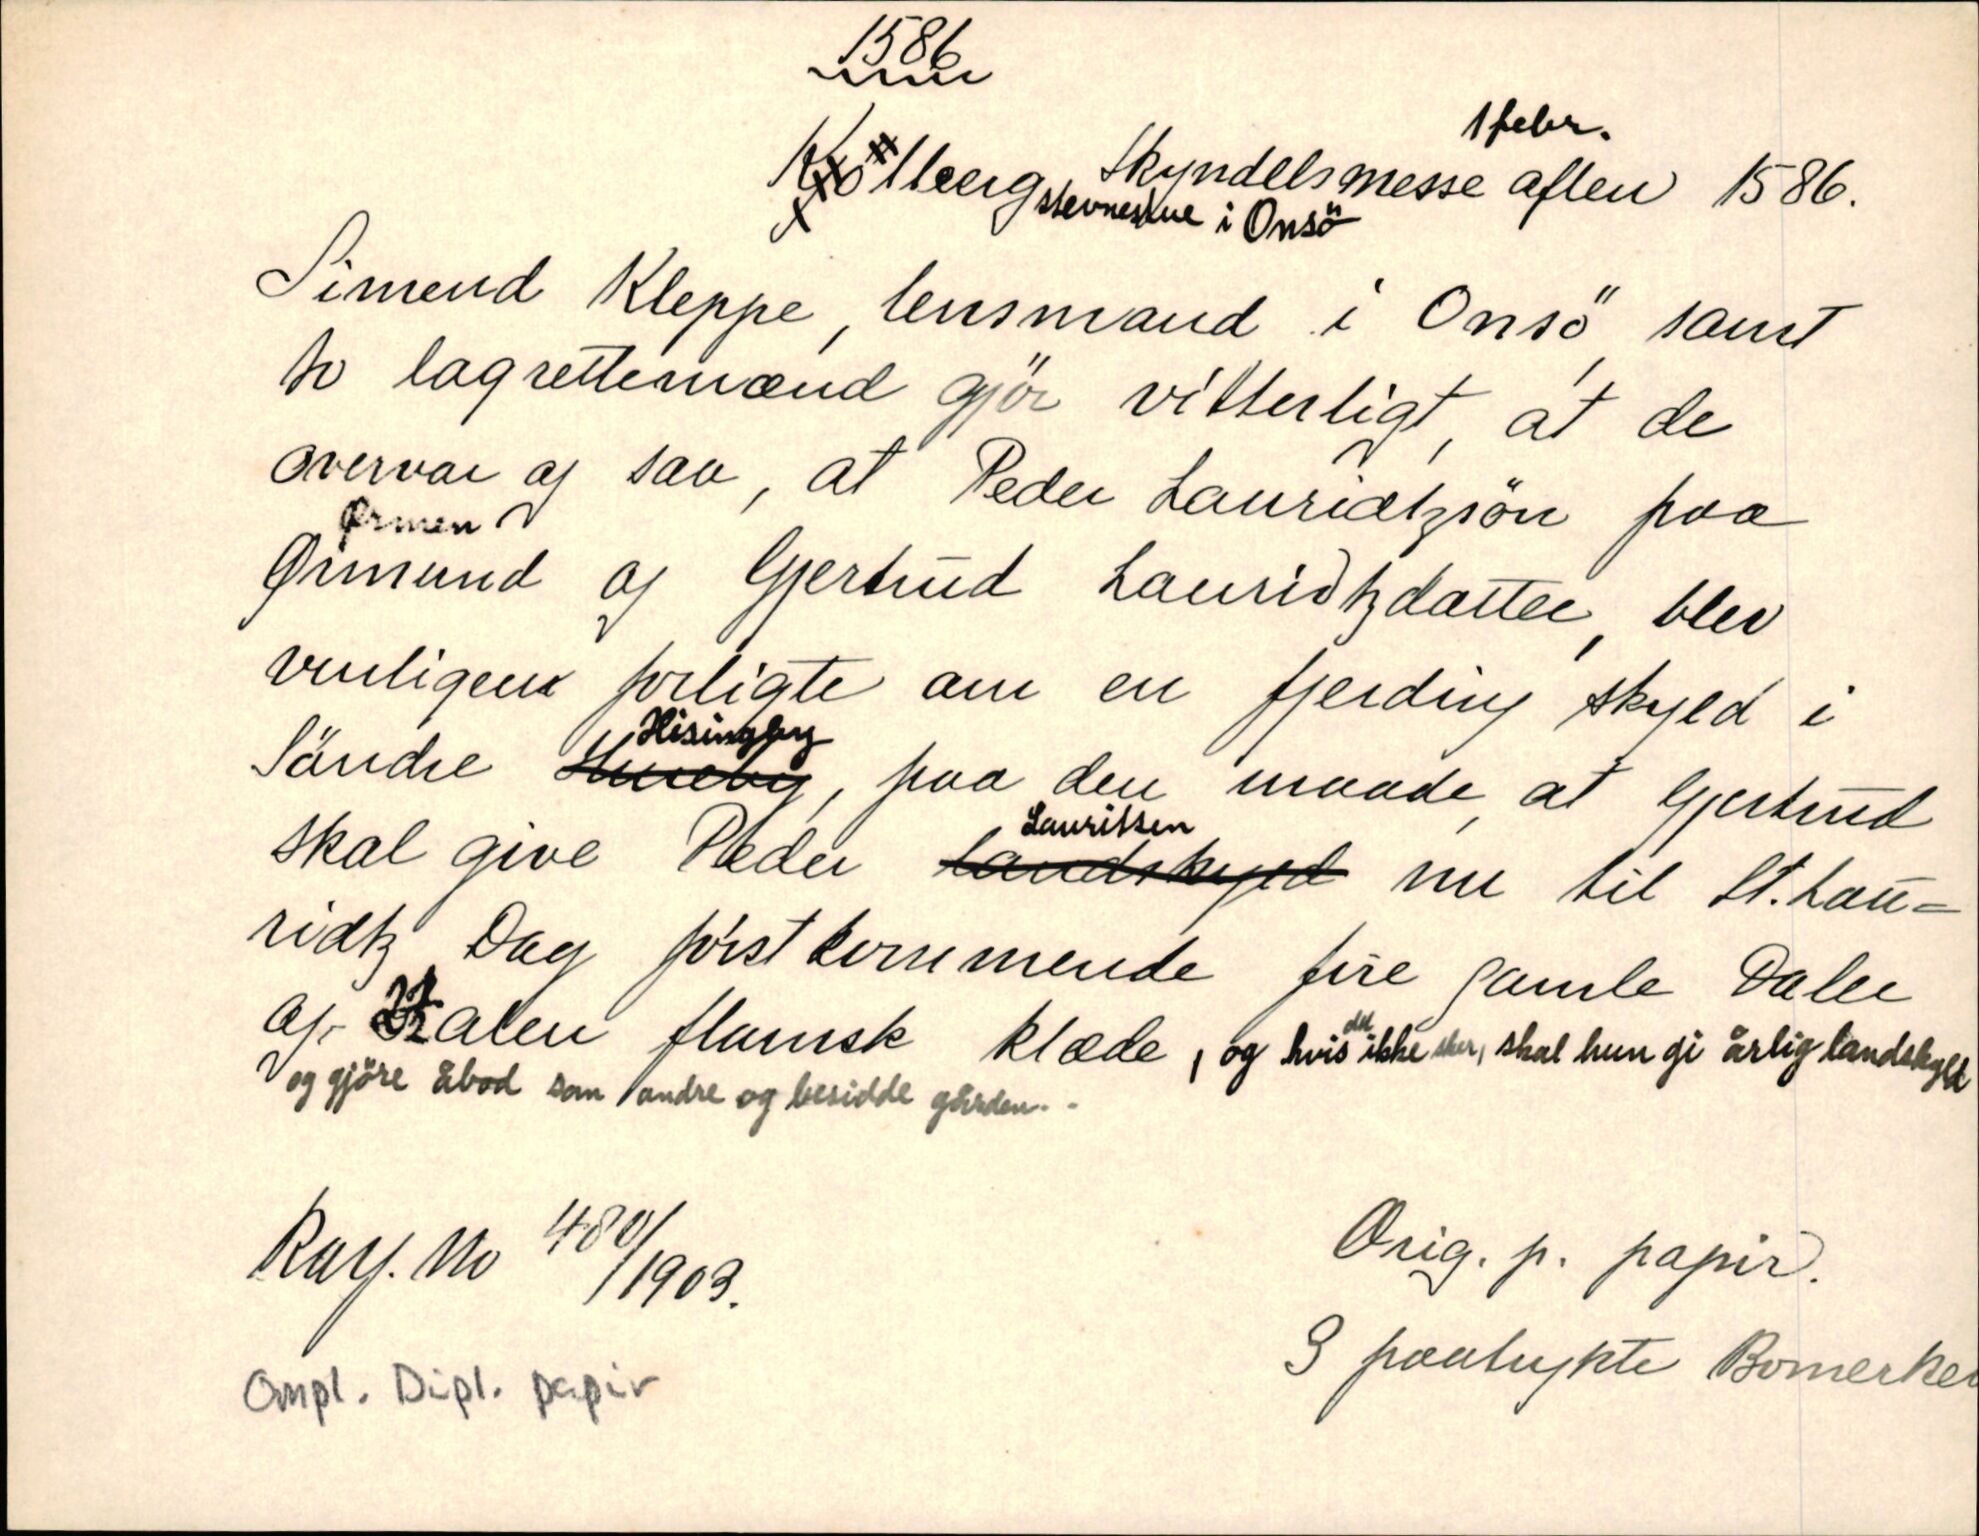 1586
1 febr.
Kölberg, Skyndelsmesse aften 1586.
stevnestue i Onsö
Simend Kleppe, lensmand i Onsö, samt
to lagrettemænd gjör vitterligt, at de
overvar og saa, at Peder Lauridtzsön paa
Ørmen
Ørmund og Gjertrud Lauridtzdatter, blev
venligen forligte om en fjerding skyld i
Hisingby
Söndre Huneby, paa den maade, at Gjertrud
Lauritsen
skal give Peder Landskyld nu til St. Lau-
ridtz Dag förstkommende fire gamle Daler
og alen flamsk klæde, og hvis det ikke sker, skal hun gi årlig landskyld
og gjöre åbod som andre og besidde gården.
RayNo 480/1903.
Orig. p. papir.
3 paatrykte Bomerker
Ompl. Dipl. papir